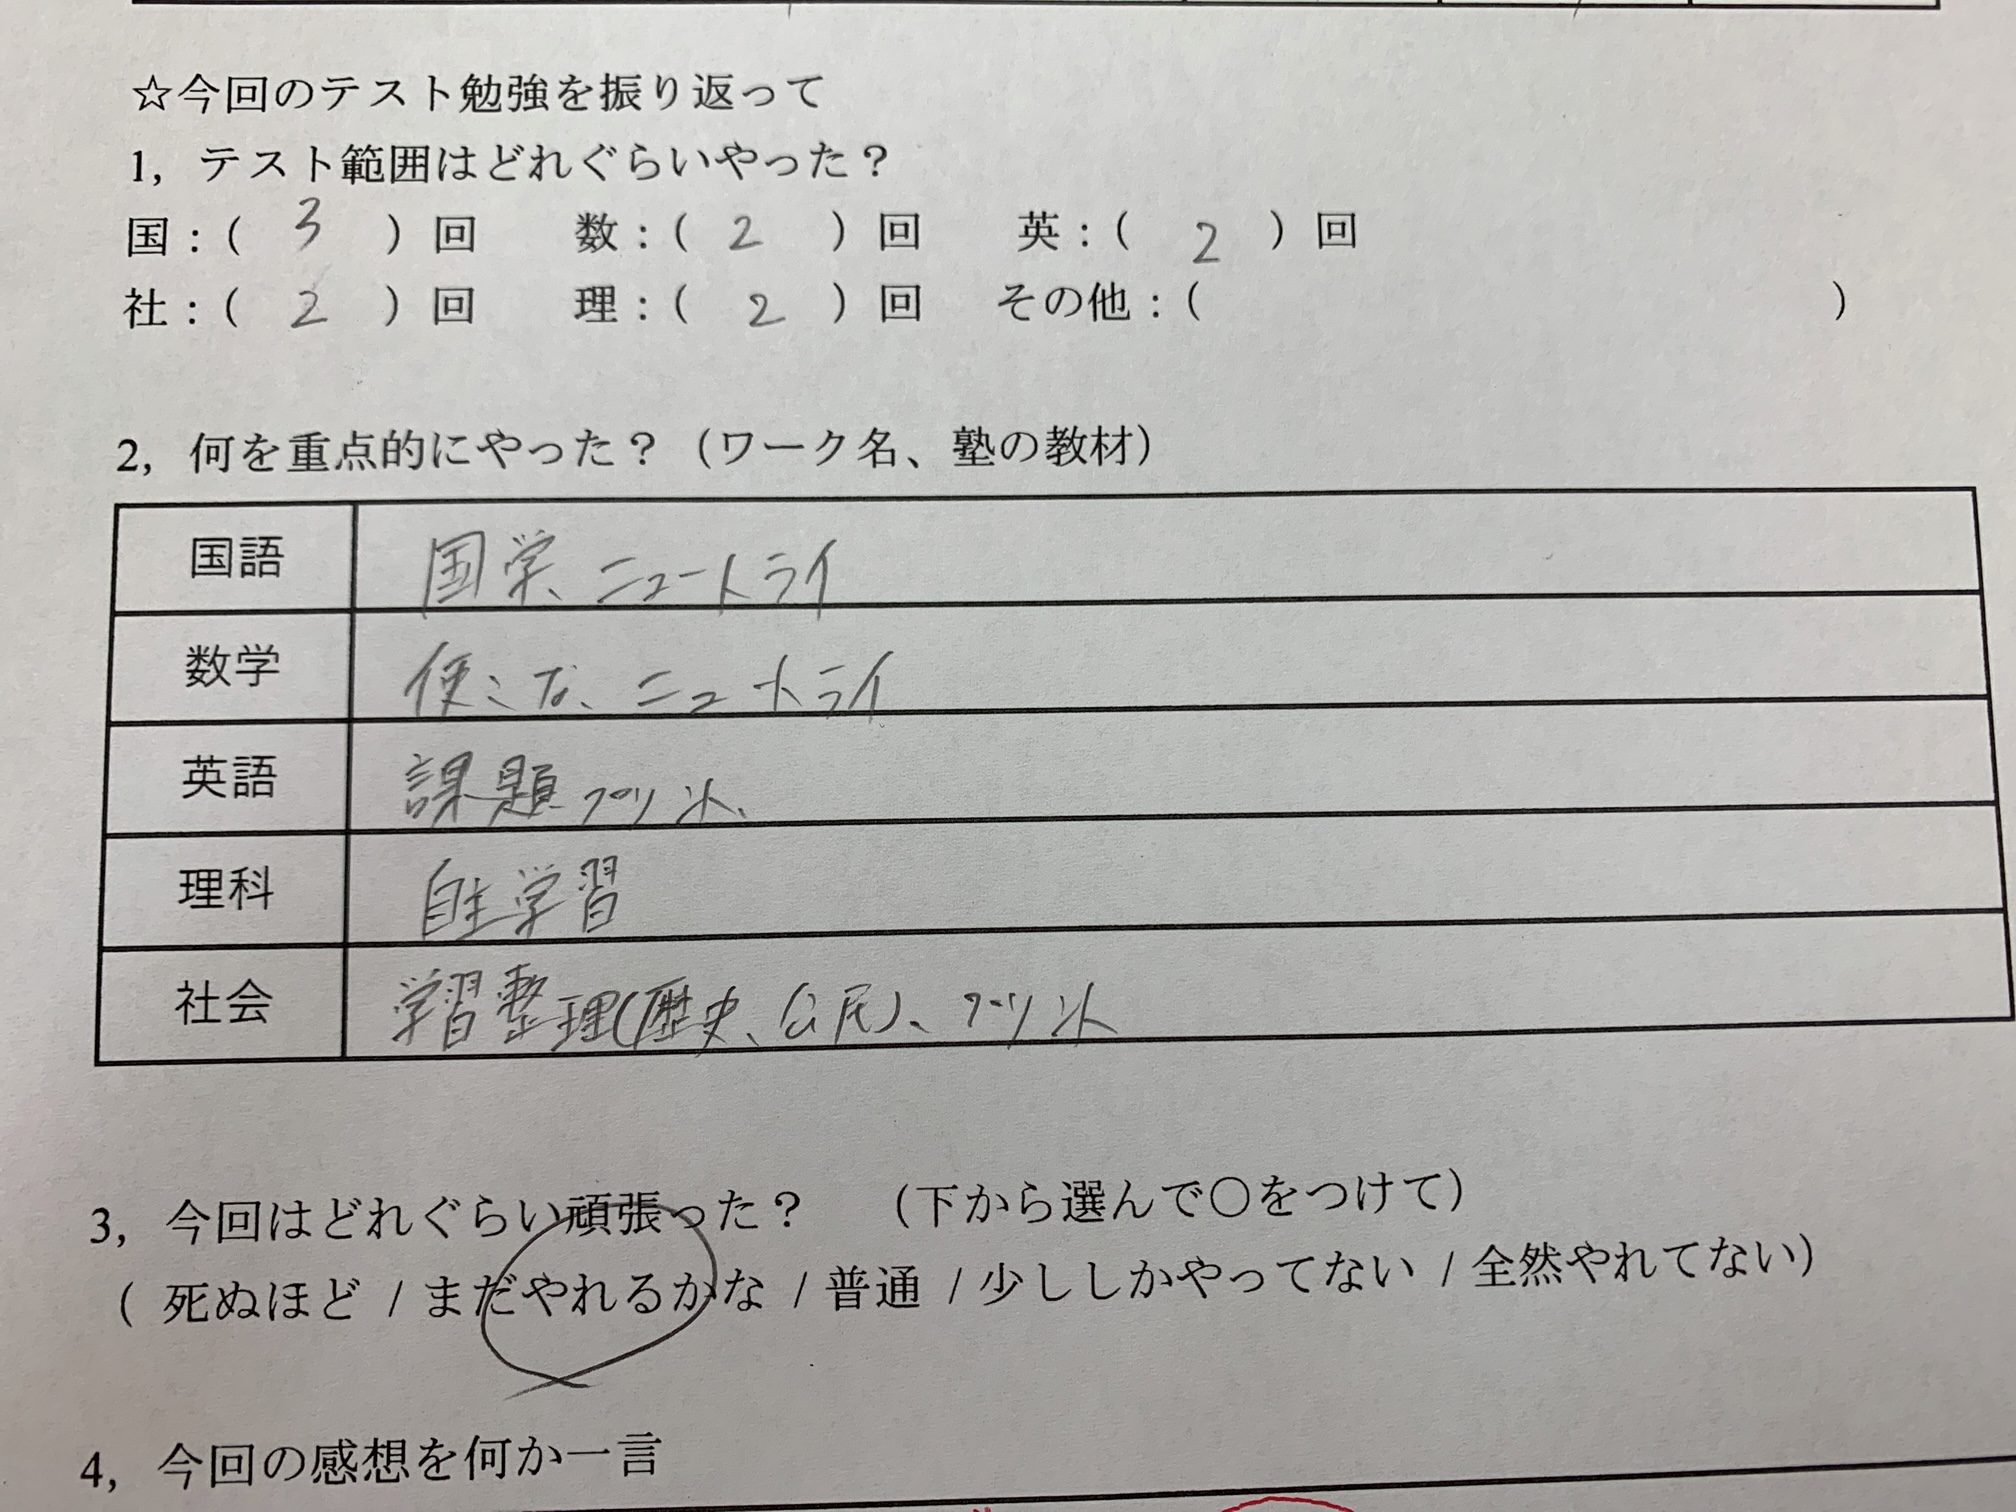 ☆今回のテスト勉強を振り返って
1, テスト範囲はどれぐらいやった？
国：( 3 ) 回 数：( 2 ) 回 英：( 2 ) 回
社：( 2 ) 回 理：( 2 ) 回 その他：( )
2, 何を重点的にやった？（ワーク名、塾の教材）
国語 国学、ニュートライ
数学 便こな、ニュートライ
英語 課題プリント、
理科 自主学習
社会 学習整理(歴史、公民)、プリント
3, 今回はどれぐらい頑張った？ （下から選んで〇をつけて）
( 死ぬほど / まだやれるかな / 普通 / 少ししかやってない / 全然やれてない)
4, 今回の感想を何か一言